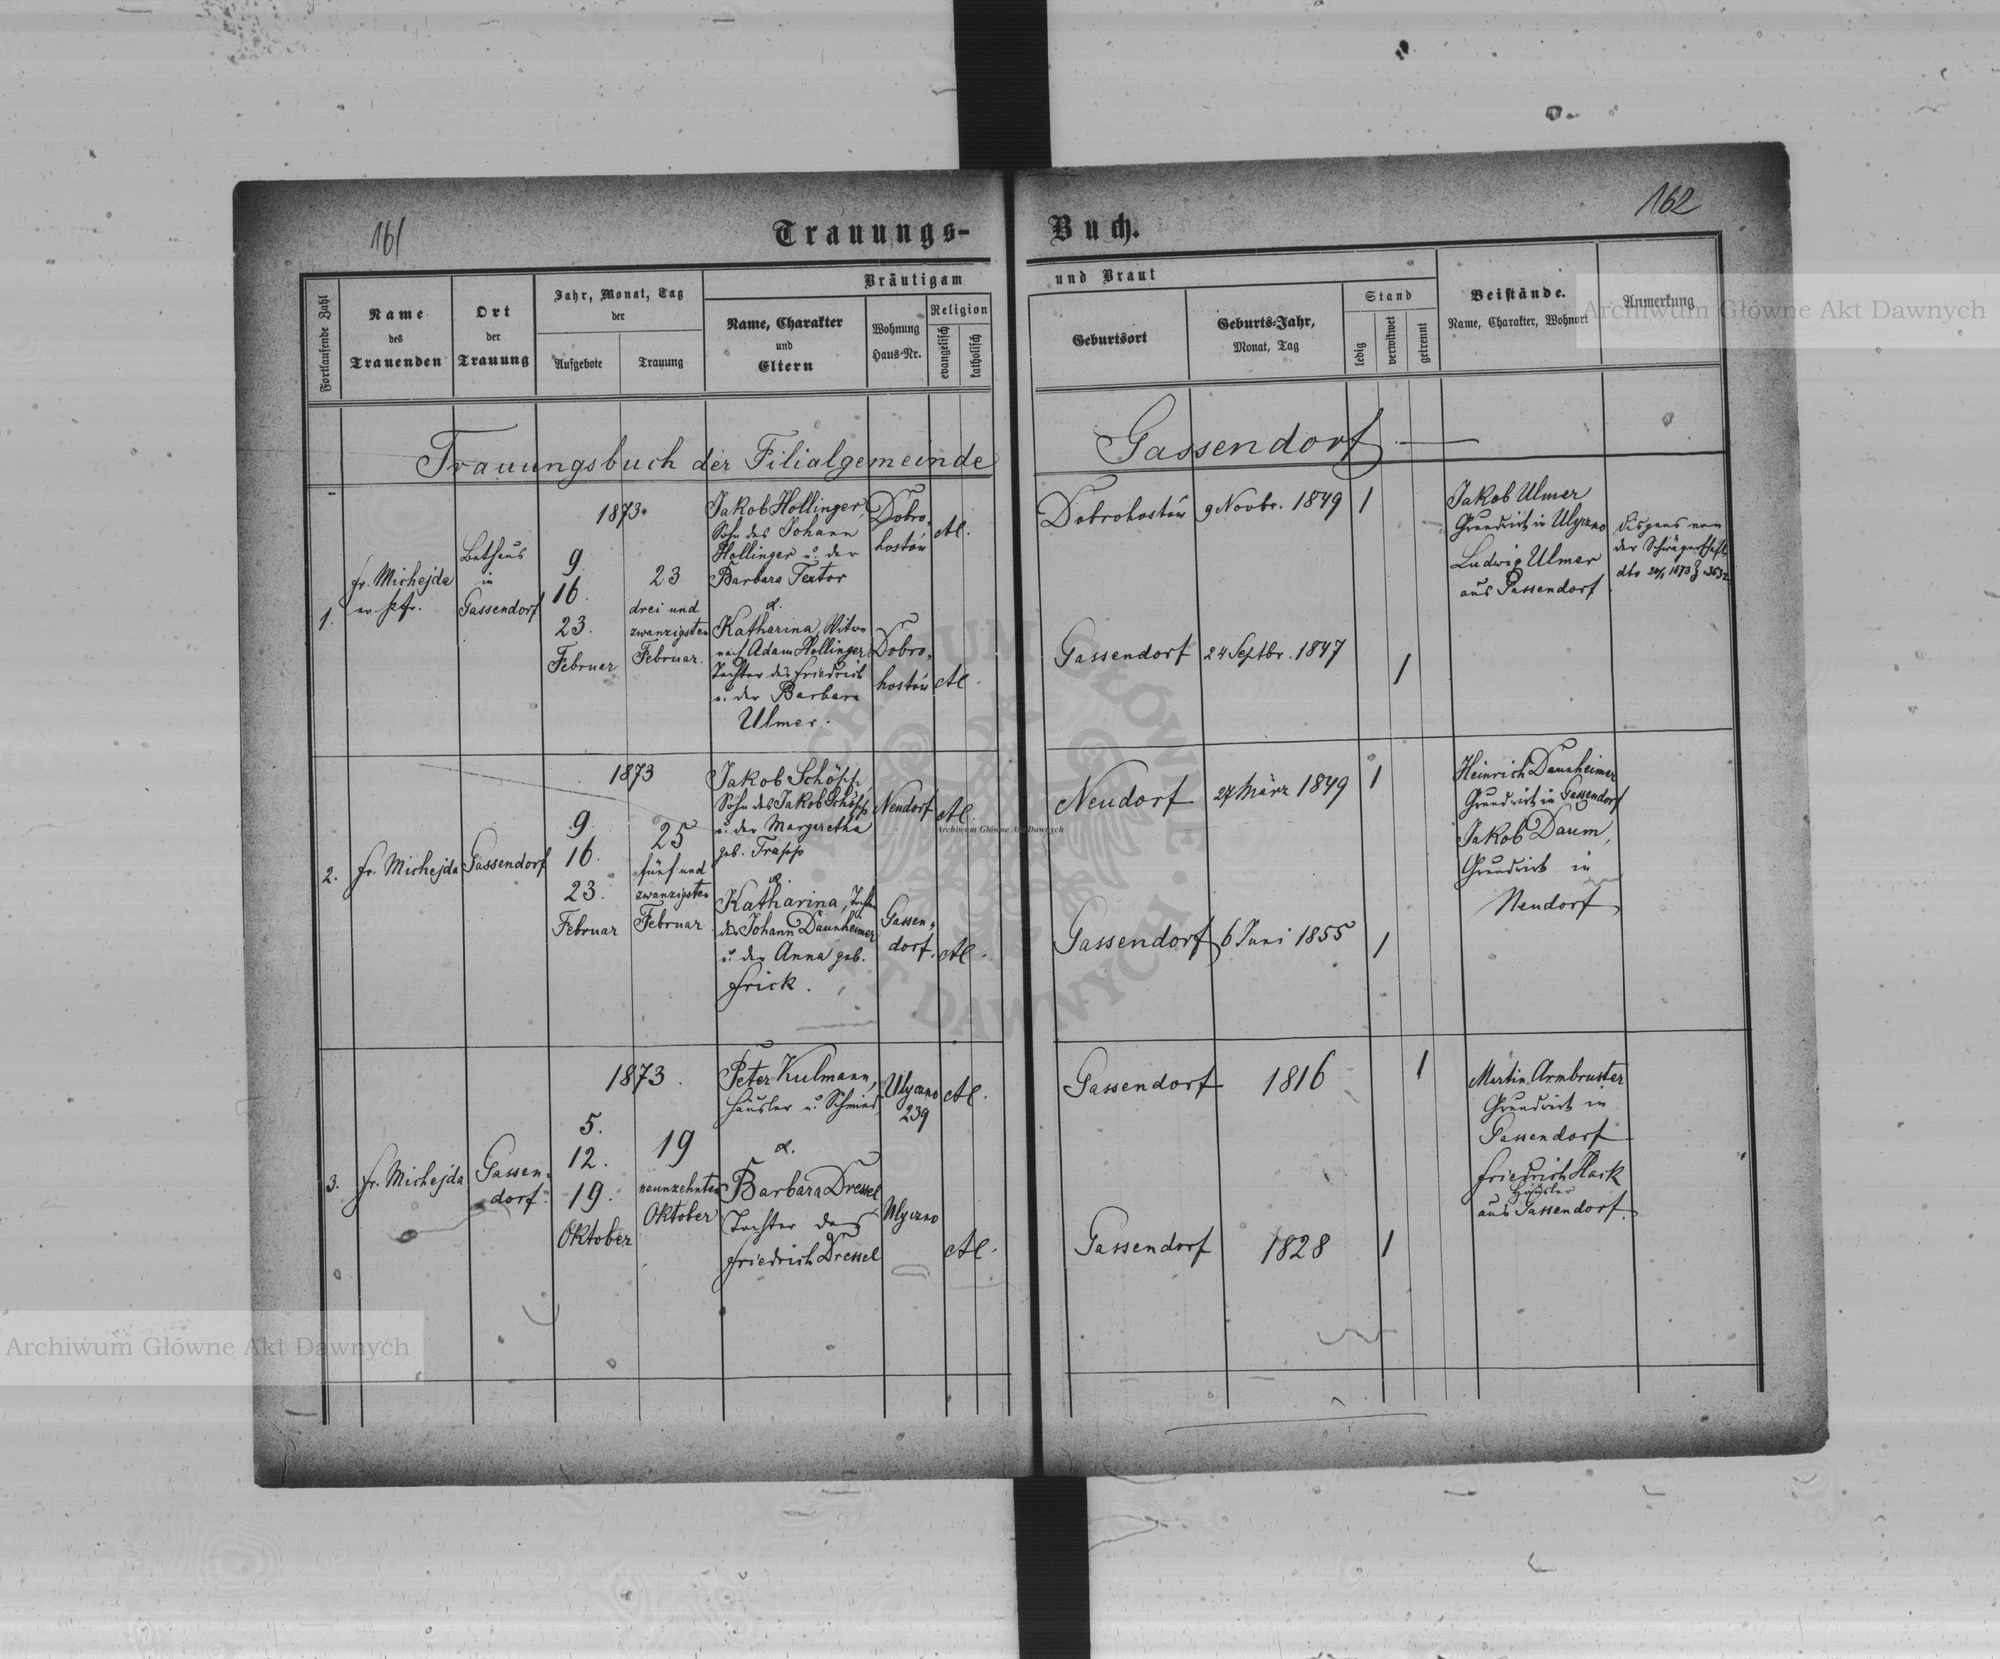 161
162
Trauungs-
Buch.
Fortlaufende Zahl
Name
des
Trauenden
Ort
der
Trauung
Jahr, Monat, Tag
der
Aufgebote
Trauung
Bräutigam
Name, Charakter
und
Eltern
Wohnung
Haus-Nr.
Religion
evangelisch
katholisch
und Braut
Geburtsort
Geburts-Jahr,
Monat, Tag
Stand
ledig
verwitwet
getrennt
Beistände.
Name, Charakter, Wohnort
Anmerkung
Trauungsbuch der Filialgemeinde
Gassendorf.
1.
fr. Michejda
ev. Pfr.
Bethaus
in
Gassendorf
1873.
9.
16.
23.
Februar
23
drei und
zwanzigsten
Februar.
Jakob Hollinger,
Sohn des Johann
Hollinger u. der
Barbara Textor
&.
Katharina, Witwe
nach Adam Hollinger
Tochter des Friedrich
u. der Barbara
Ulmer.
Dobro-
hostów
AC.
Dobro-
hostów
AC.
Dobrohostów
9 Novbr. 1849
1
Gassendorf
24 Septbr. 1847
1
Jakob Ulmer
Grundwirt in Ulyczno
Ludwig Ulmer
aus Gassendorf
Dispens von
der Schwägerschaft
dto
1873
2.
fr. Michejda
Gassendorf
1873
9.
16.
23.
Februar
25
fünf und
zwanzigsten
Februar
Jakob Schöpp,
Sohn des Jakob Schöpp
u. der Margaretha
geb. Trapp
&.
Katharina, Tochter
des Johann Daunheimer
u. der Anna geb.
Frick.
Neudorf
AC.
Gassen-
dorf.
AC.
Neudorf
27 März 1849
1
Gassendorf
6 Juni 1855
1
Heinrich Daunheimer
Grundwirt in Gassendorf
Jakob Daum,
Grundwirt in
Neudorf
3.
fr. Michejda
Gassen-
dorf.
1873.
5.
12.
19.
Oktober
19
neunzehnten
Oktober
Peter Kulmann,
Häusler u. Schmied
&.
Barbara Dressel
Tochter des
Friedrich Dressel
Ulyczno
239
AC.
Ulyczno
AC.
Gassendorf
1816
1
Gassendorf
1828
1
Martin Armbruster
Grundwirt in
Gassendorf
Friedrich Hack
Häusler
aus Gassendorf.
Archiwum Główne Akt Dawnych
Archiwum Główne Akt Dawnych
Archiwum Główne Akt Dawnych
ARCHIWUM GŁÓWNE AKT DAWNYCH